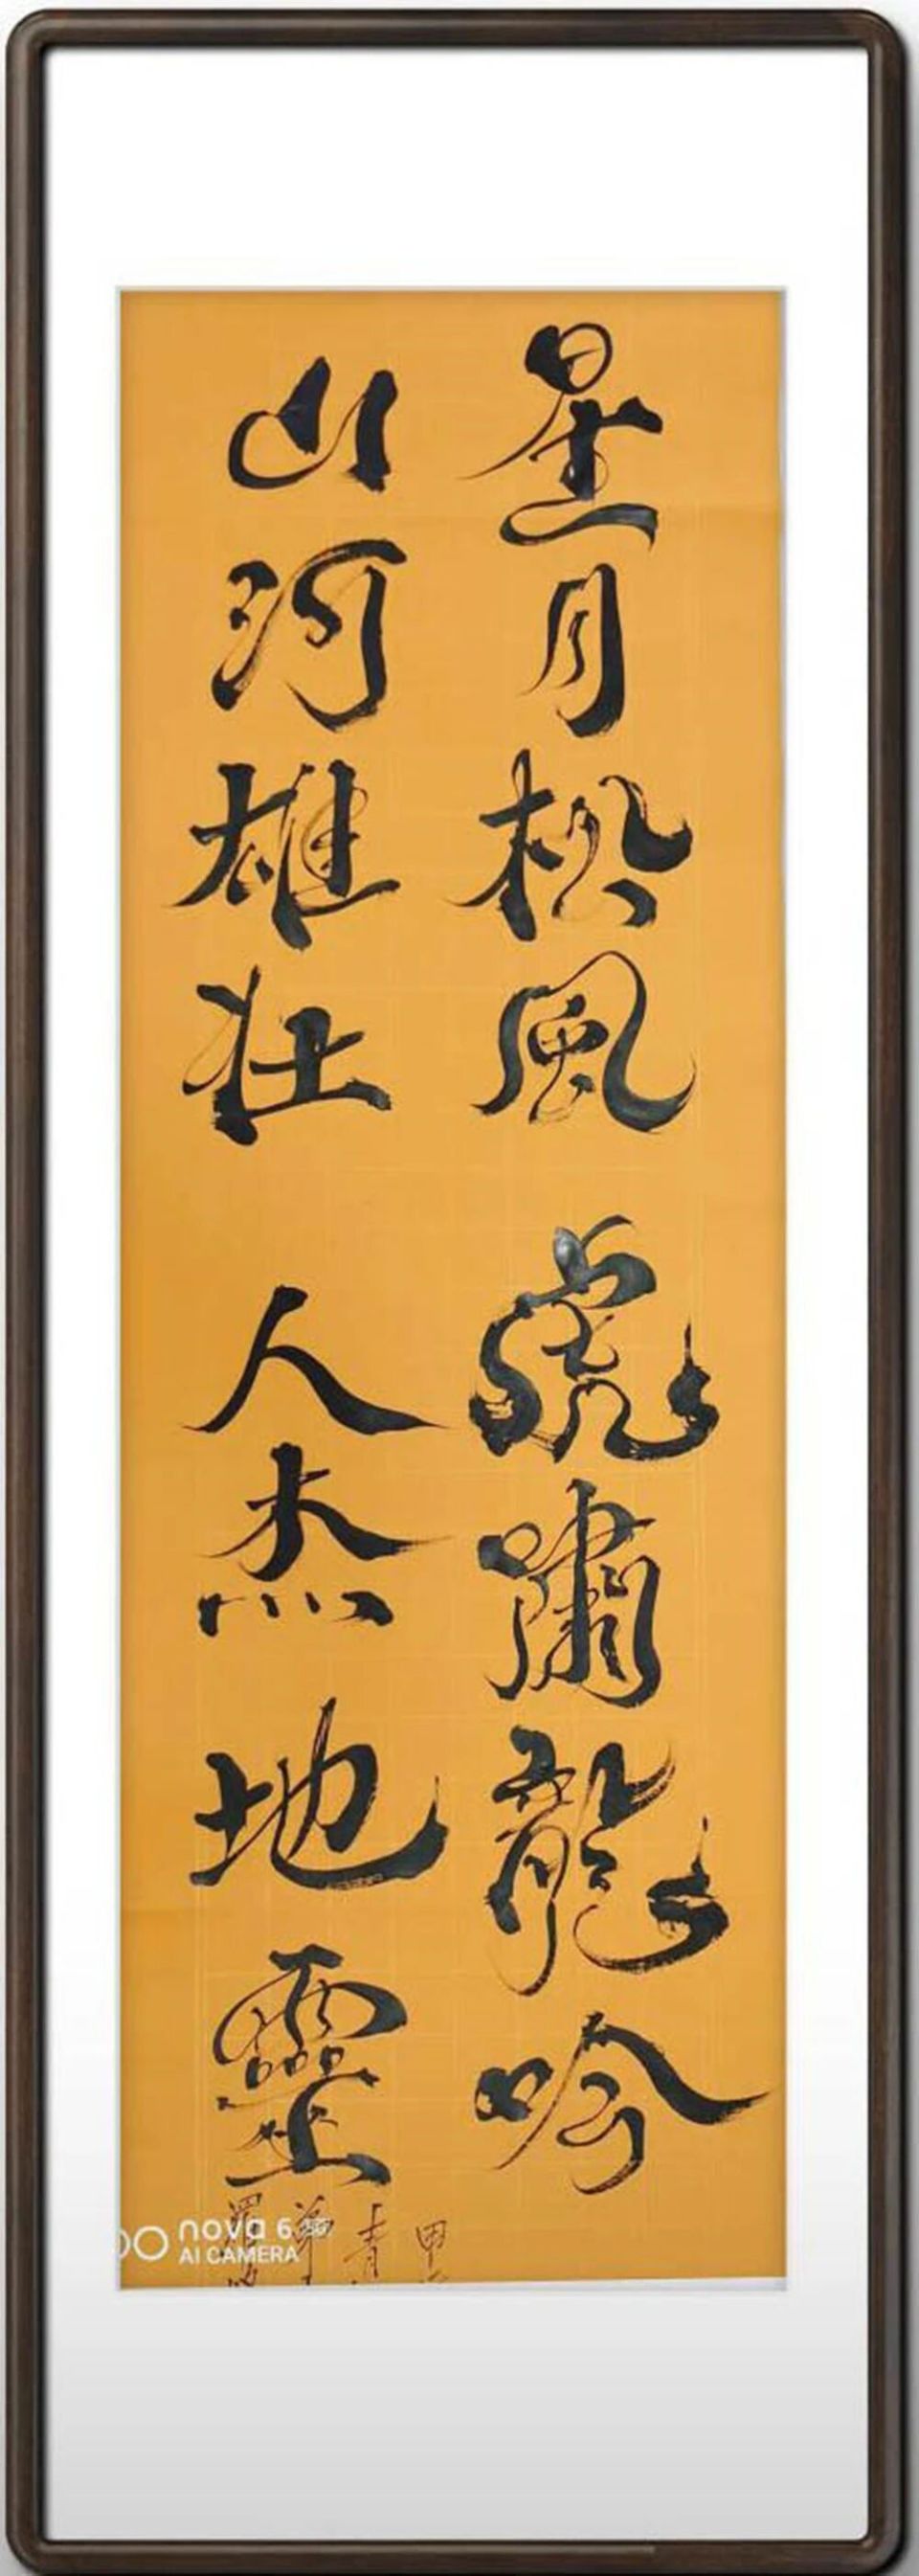 星月松風 虎嘯龍吟
山河雄壯 人杰地靈
甲
青
nova 6 5G
AI CAMERA